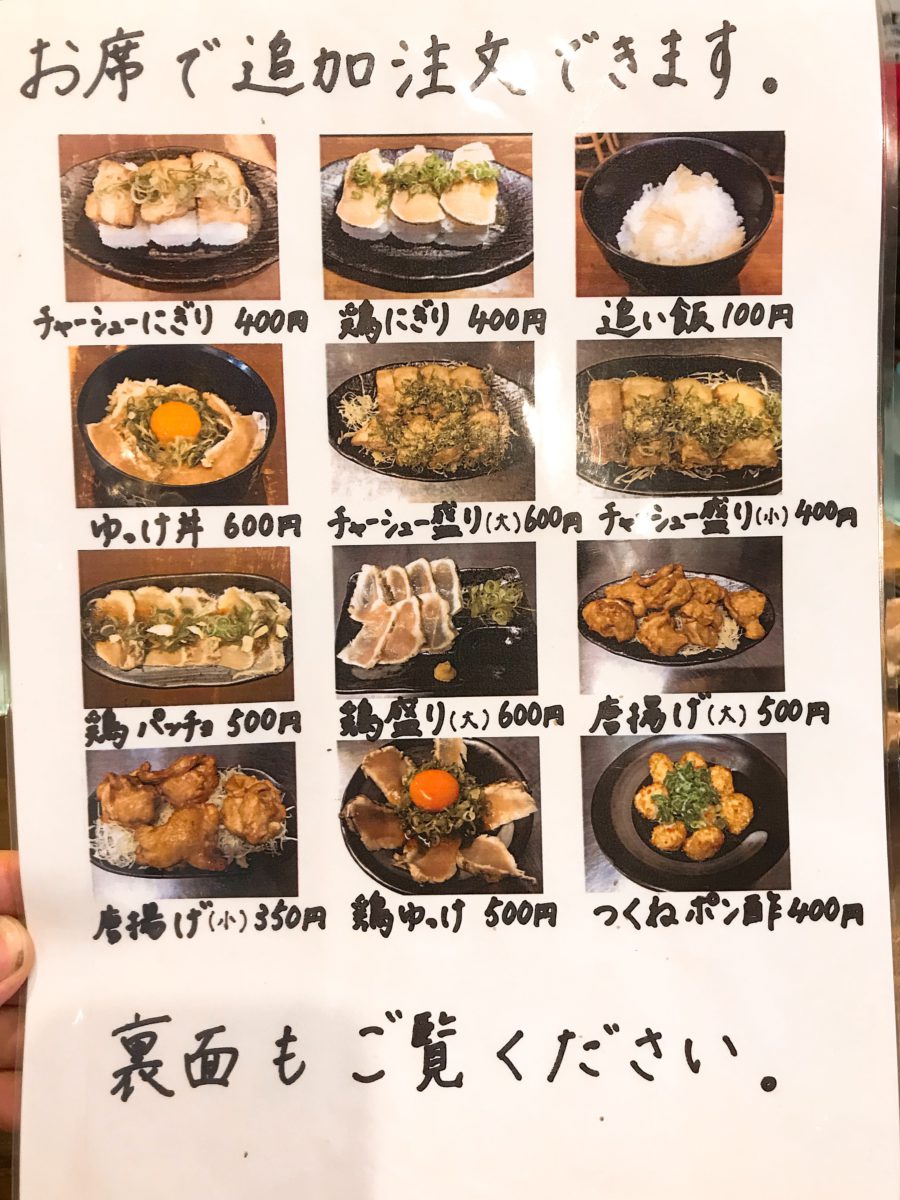 お席で追加注文できます。
チャーシューにぎり 400円
鶏にぎり 400円
追い飯 100円
ゆっけ丼 600円
チャーシュー盛り(大) 600円
チャーシュー盛り(小) 400円
鶏パッチョ 500円
鶏盛り(大) 600円
唐揚げ(大) 500円
唐揚げ(小) 350円
鶏ゆっけ 500円
つくねポン酢 400円
裏面もご覧ください。